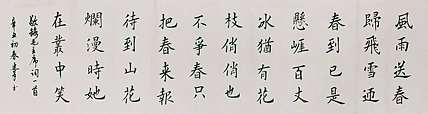 風雨送春
歸飛雪迎
春到已是
懸崖百丈
冰猶有花
枝俏俏也
不爭春只
把春來報
待到山花
爛漫時她
在叢中笑
敬錄毛主席詞一首
辛丑初春